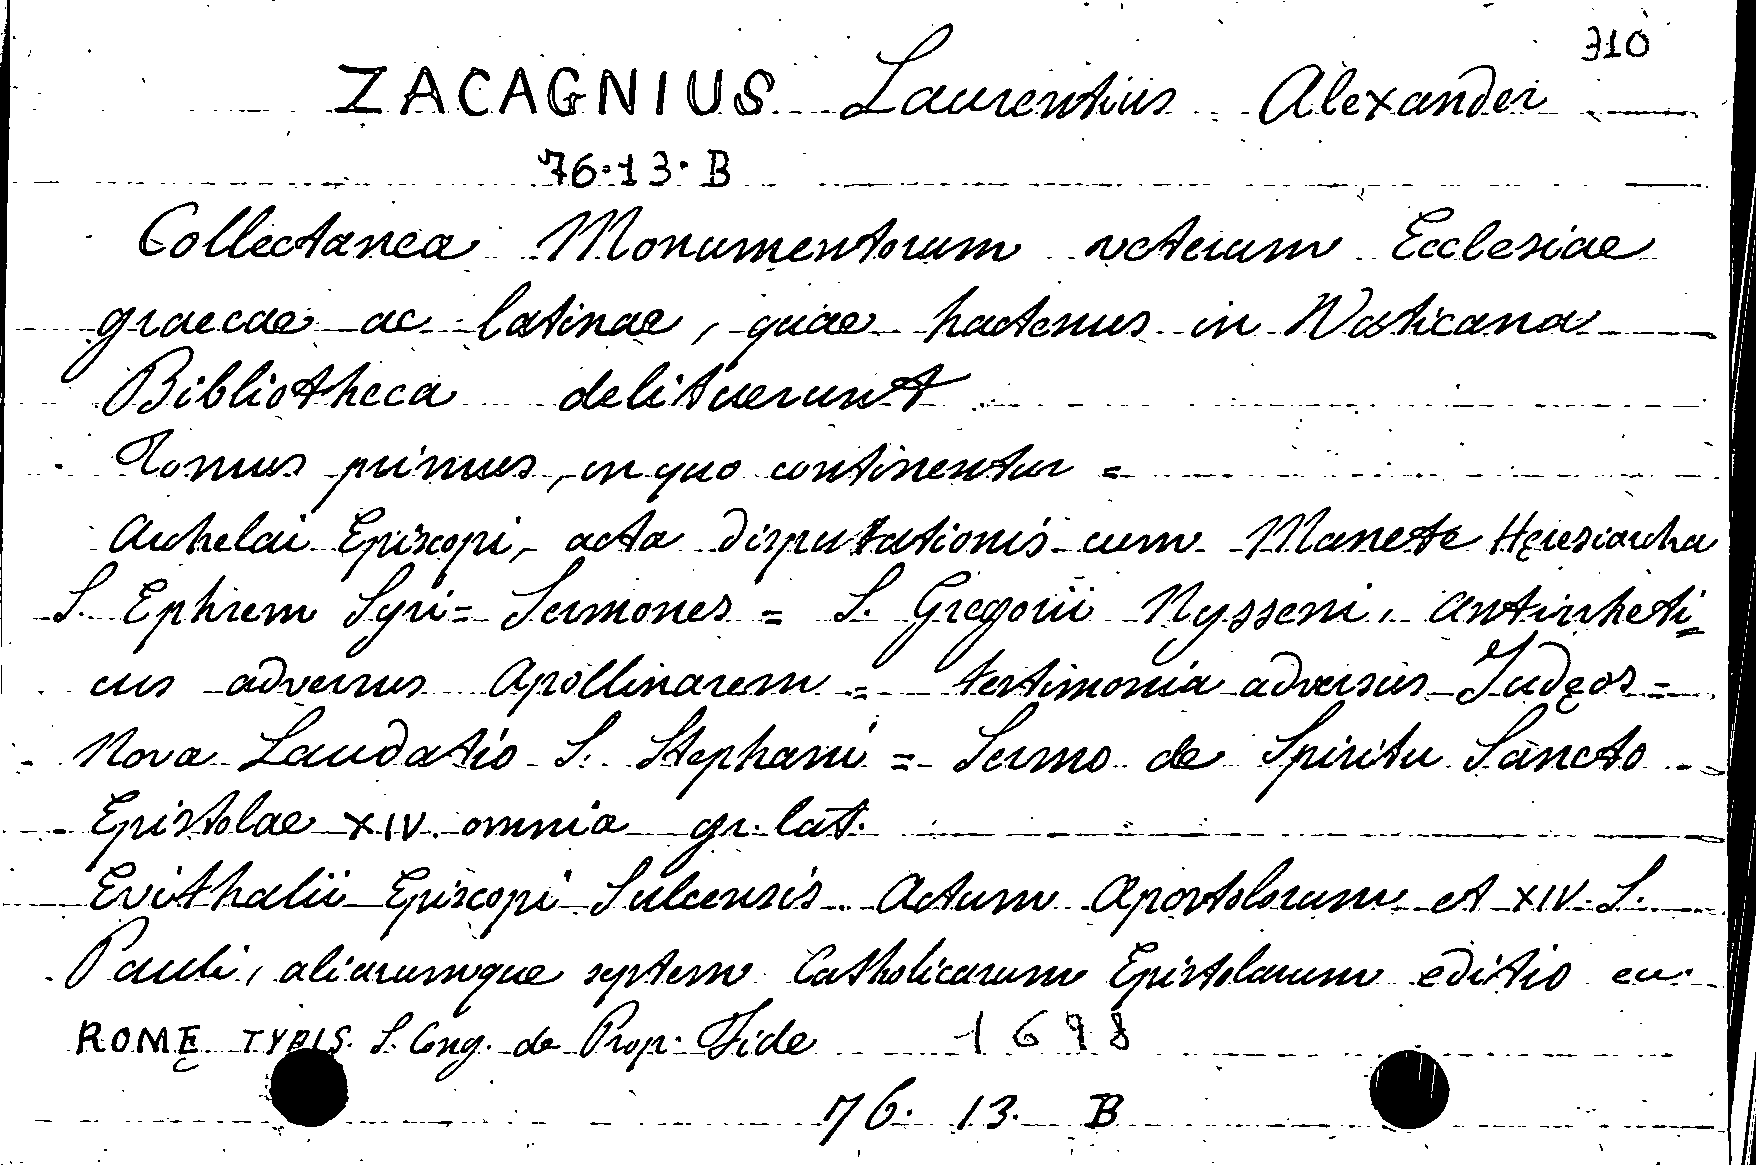 310
ZACAGNIUS Laurentius Alexander
76.13.B
Collectanea Monumentorum veterum Ecclesiae
graecae ac latinae, quae hactenus in Vaticana
Bibliotheca delituerunt
Tomus primus, in quo continentur =
Archelai Episcopi, acta disputationis cum Manete Hęresiarcha
S. Ephrem Syri = Sermones = S. Gregorii Nysseni, Antirrheti=
cus adversus Apollinarem = testimonia adversus Judęos =
Nova Laudatio S. Stephani = Sermo de Spiritu Sancto
Epistolae XIV. omnia gr. lat.
Evithalii Episcopi Sulcensis Actum Apostolorum et XIV. S.
Pauli, aliarumque septem Catholicarum Epistolarum editio ex.
ROMĘ TYPIS. S. Cong. de Prop. Fide 1698
76. 13. B